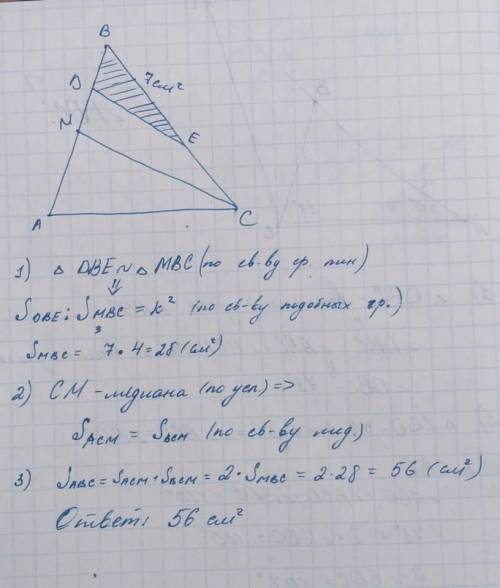 B
D
7см²
M
E
A
C
1) △ DBE ~ △ MBC (по св-ву ср. лин)
⇓
S DBE : S MBC = k² (по св-ву подобных тр.)
S MBC = 7 • 4 = 28 (см²)
2) CM - медиана (по усл.) =>
S ACM = S BCM (по св-ву мед.)
3) S ABC = S ACM • S BCM = 2 • S MBC = 2 • 28 = 56 (см²)
Ответ: 56 см²